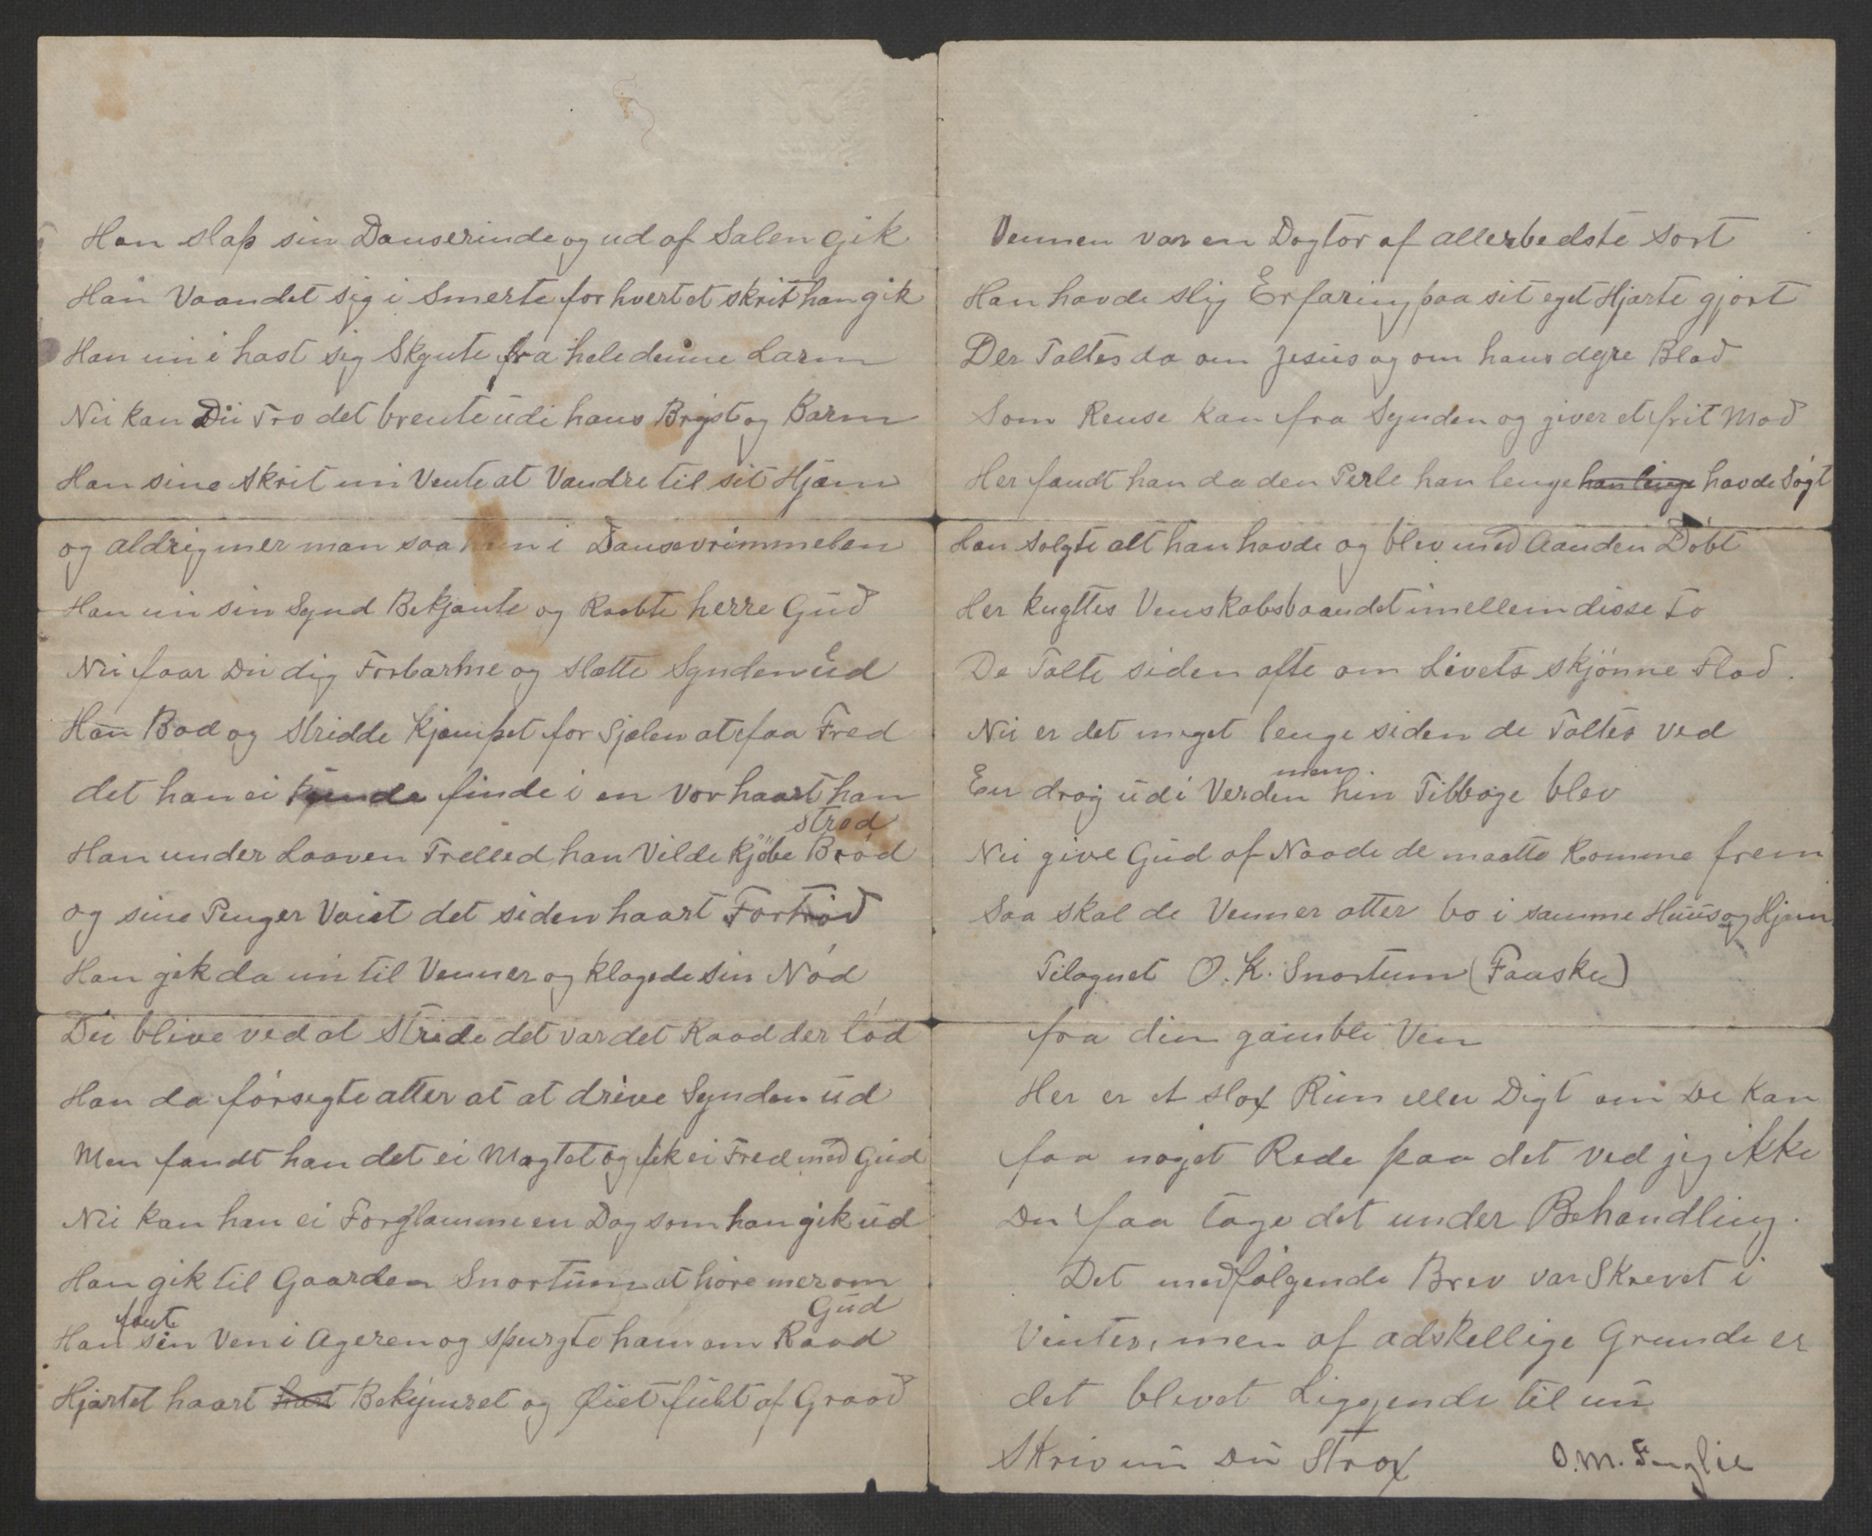 Han slap sin Danserinde og ud af Salen gik
Han Vaandet sig i Smerte for hvert et skrit han gik
Han nu i hast sig Skynte fra hele denne Larm
Nu kan Du Tro det brente udi hans Bryst og Barm
Han sine skrit nu Vente at Vandre til sit Hjem
og aldrig mer man saa han i Dansevrimmelen
Han nu sin Synd Bekjante og Raabte herre Gud
Nu faar Du dig Forbarme og slette Synden ud
Han Bad og stridde kjempet for Sjelen at faa Fred
det han ei kunde finde i en Vor haart han
stred
Han under Laaven Trelled han Vilde kjøbe Brød
og sine Penger Vaiet det siden haart Fortrød
Han gik da nu til Venner og klagede sin Nød
Du blive ved at stride det var det Raad der lød
Han da førsegte atter at at drive Synden ud
Men fandt han det ei Magtet og fik ei Fred med Gud
Nu kan han ei Forglamme en Dag som han gik ud
Han gik til Gaarden Snortum at høre mer om
Gud
Han fante sin Ven i Ageren og spurgte ham om Raad
Hjartet haart hart Bekymret og Øiet fuldt af Graad
Vennen var en Dogtor af allerbedste sort
Han havde slig Erfaring paa sit eget Hjarte gjort
Der Taltes da om Jesus og om hans dyre Blod
Som Rense kan fra Synden og giver et frit Mod
Her fandt han da den Perle han lenge han lenge havde Søgt
Han solgte alt han havde og blev med Aanden Døbt
Her knyttes Venskabsbaandet imellem disse to
De Talte siden ofte om Livets skjønne Flod.
Nu er det meget lenge siden de Taltes ved
En drog udi Verden men hin Tilbage blev
Nu give Gud af Naade de maatte komme frem
Saa skal de Venner atter bo i samme Huus og Hjem
Tilegnet O. K. Snortum (Faaske)
fra din gamble Ven
Her er et slax Rim eller Digt om De kan
faa noget Rede paa det ved jeg ikke
Du faa tage det under Behandling.
Det medfølgende Brev var Skrevet i
Vinter, men af adskellige Grunde er
det blevet Liggende til nu
Skriv nu Du Strax O. M. Fuglie